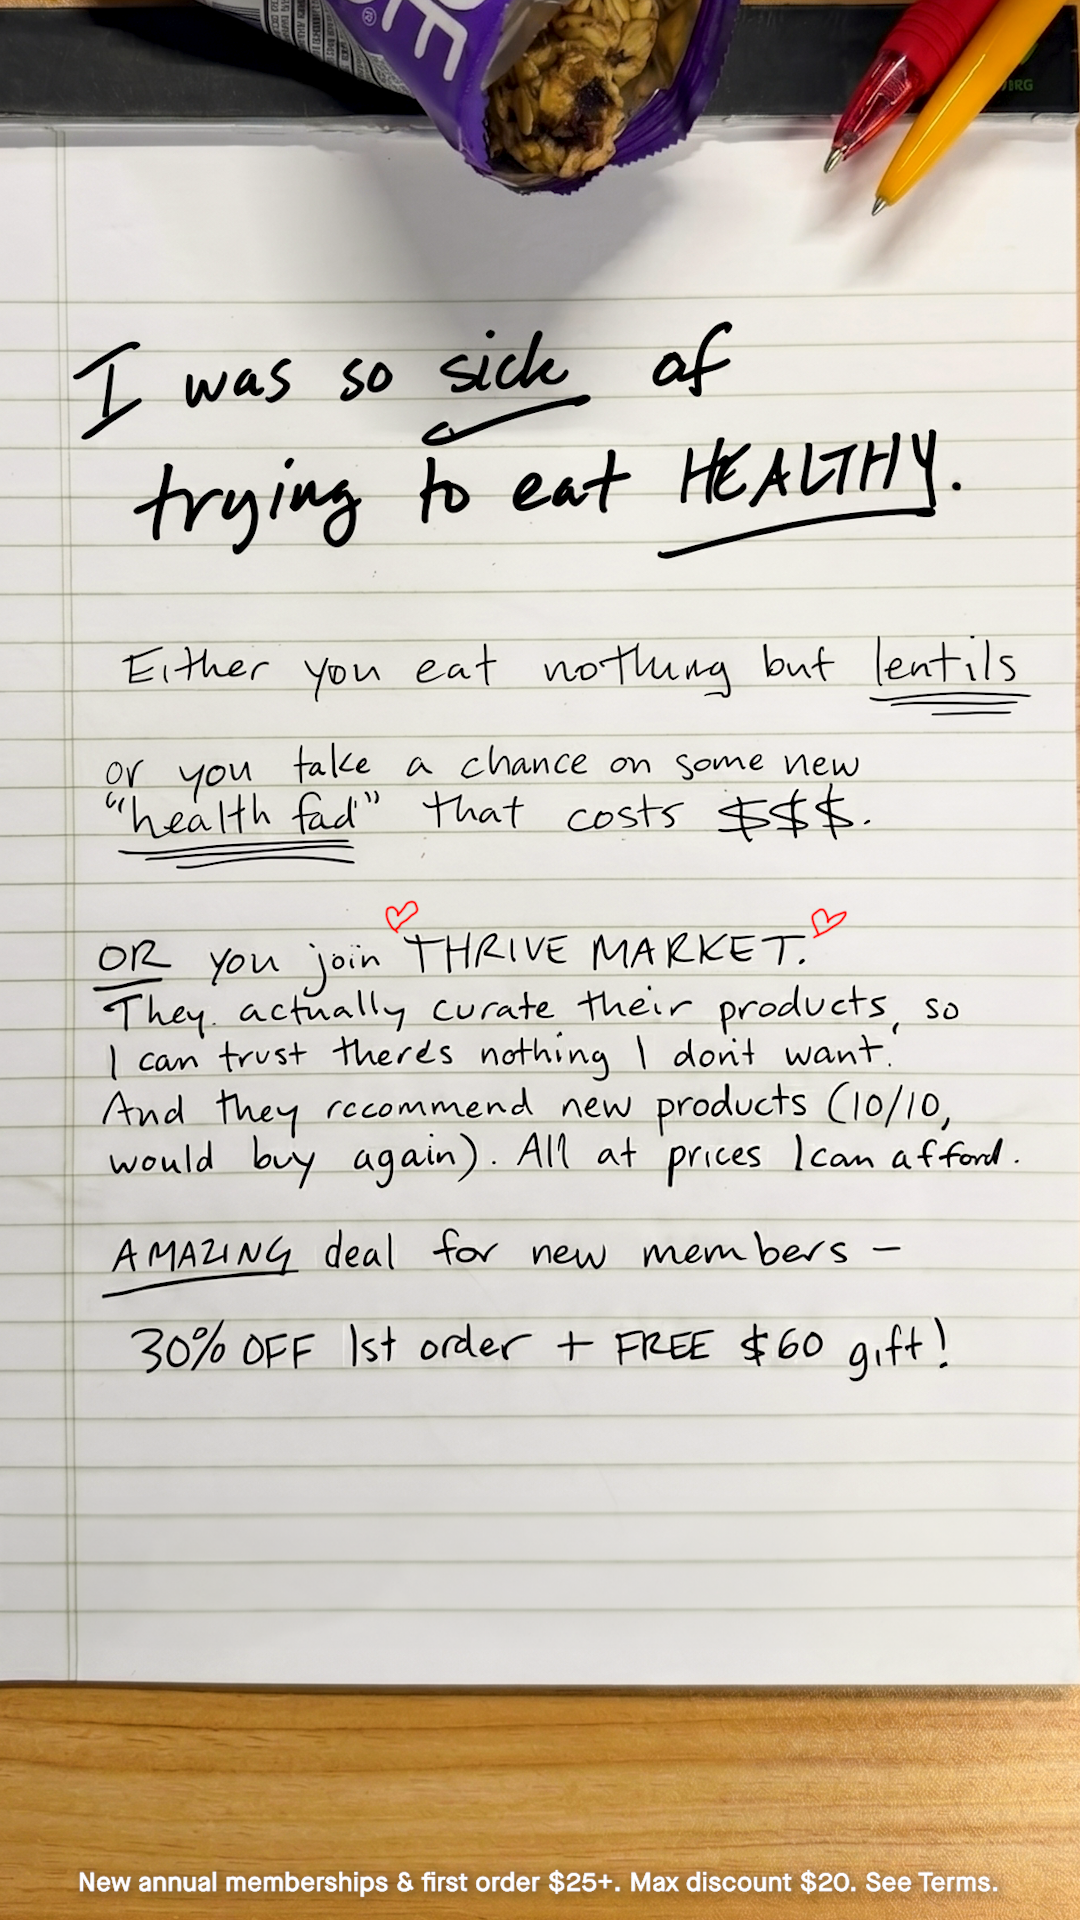 I was so sick of
trying to eat HEALTHY.
Either you eat nothing but lentils
or you take a chance on some new
"health fad" that costs $$$.
OR you join THRIVE MARKET.
They actually curate their products, so
I can trust there's nothing I don't want.
And they recommend new products (10/10,
would buy again). All at prices I can afford.
AMAZING deal for new members –
30% OFF 1st order + FREE $60 gift!
New annual memberships & first order $25+. Max discount $20. See Terms.